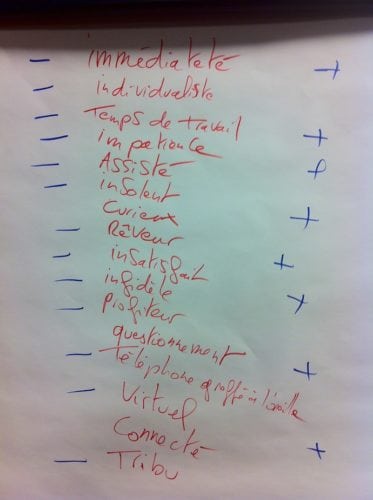 - immédiateté +
individualiste
- Temps de travail +
- impatience
- Assisté +
- insolent
curieux +
- Rêveur
- insatisfait +
- infidèle +
- profiteur
questionnement
- Téléphone greffé à l'oreille +
- Virtuel
Connecté +
- Tribu